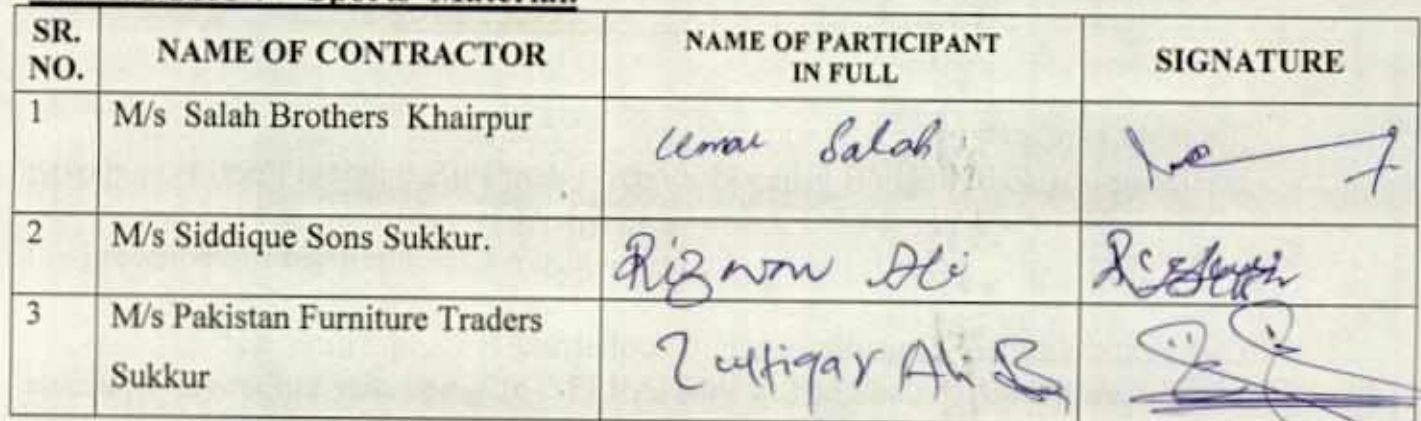 Sports Material.
SR. NO.
NAME OF CONTRACTOR
NAME OF PARTICIPANT IN FULL
SIGNATURE
1 M/s Salah Brothers Khairpur Umar Salah
2 M/s Siddique Sons Sukkur. Rizwan Ali
3 M/s Pakistan Furniture Traders Zulfiqar Ali
Sukkur